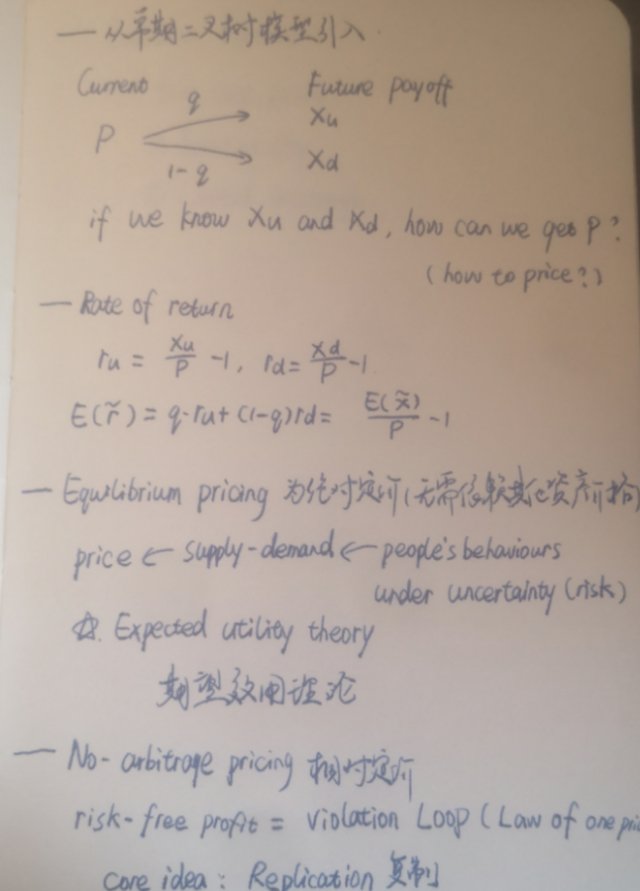 — 从单期二叉树模型引入.
Current Future payoff
q Xu
P
1-q Xd
if we know Xu and Xd, how can we get P?
(how to price?)
— Rate of return
ru = Xu/P -1, rd = Xd/P -1
E(r̃) = q·ru + (1-q)rd = E(x̃)/P -1
— Equilibrium pricing 为绝对定价(无需依赖其他资产价格)
price ← supply-demand ← people's behaviours
under uncertainty (risk)
☆. Expected utility theory
期望效用理论
— No-arbitrage pricing 相对定价
risk-free profit = Violation Loop (Law of one pri
core idea: Replication 复制